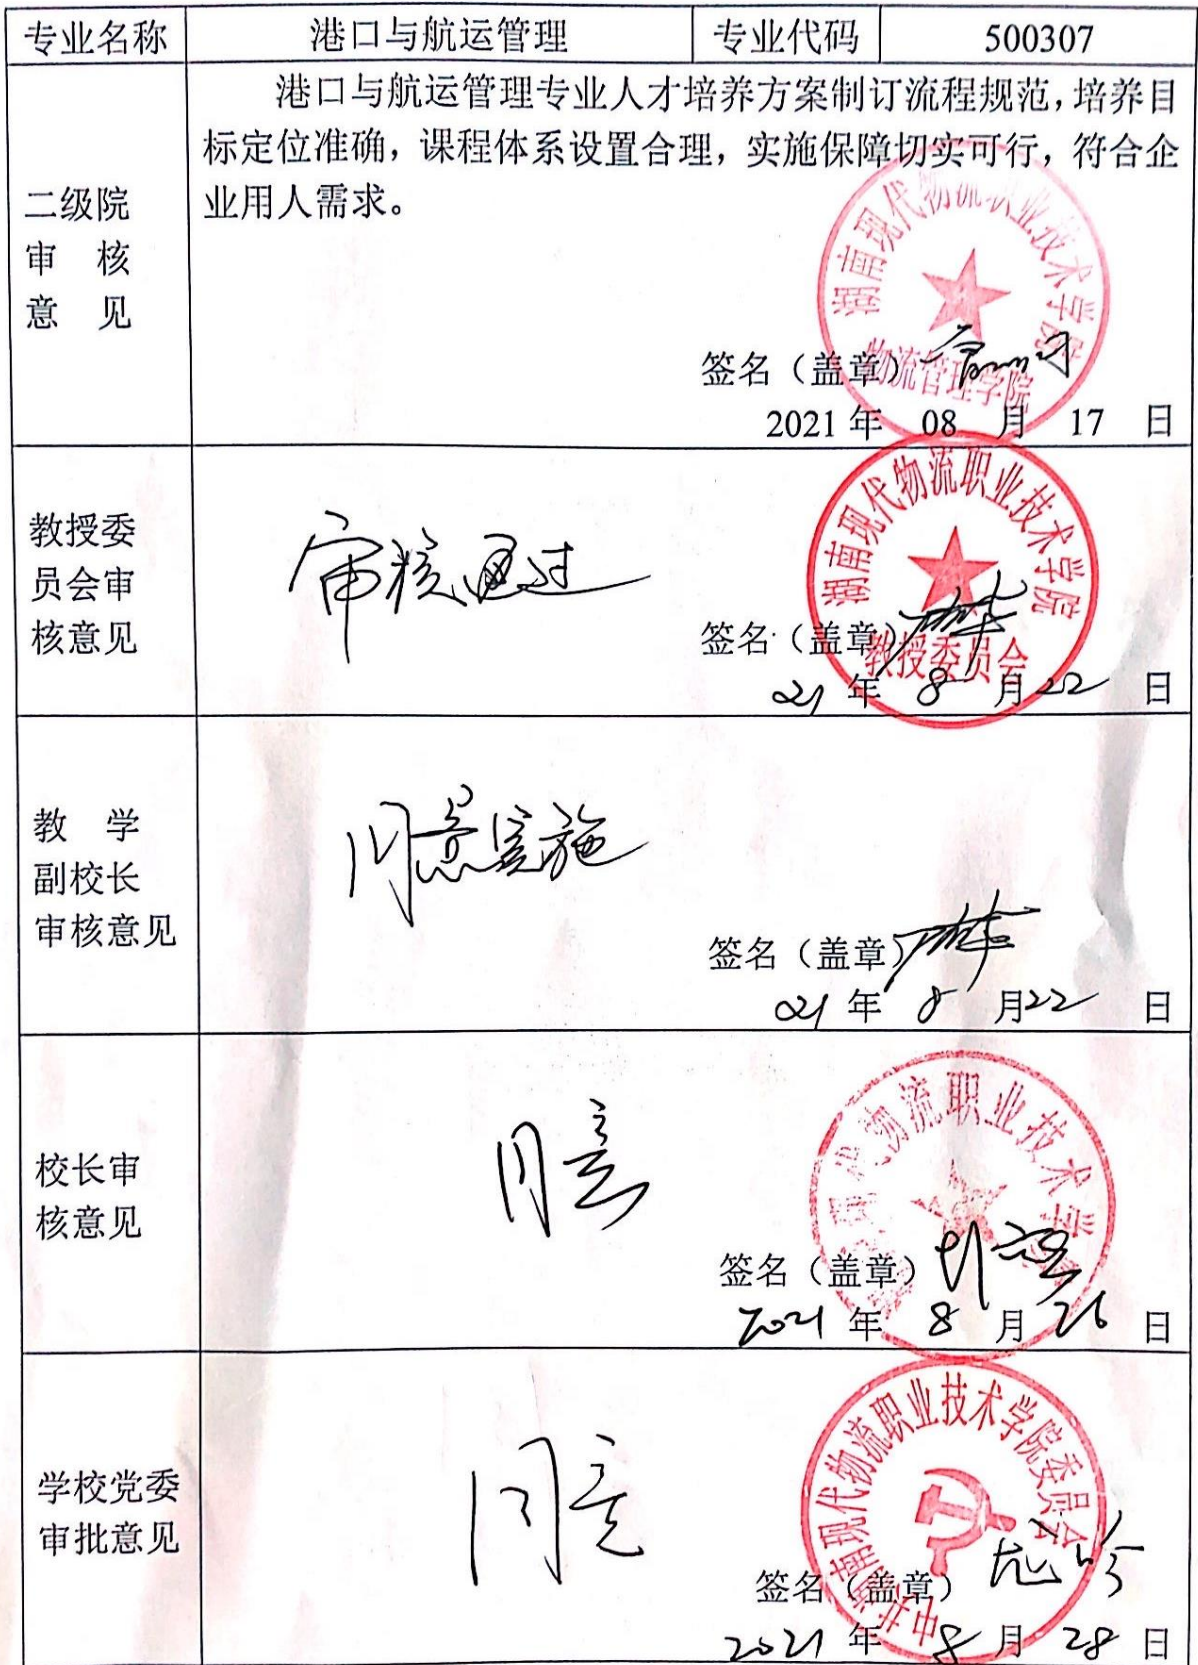 专业名称 港口与航运管理 专业代码 500307
二级院
审 核
意 见
港口与航运管理专业人才培养方案制订流程规范，培养目
标定位准确，课程体系设置合理，实施保障切实可行，符合企
业用人需求。
湖南现代物流职业技术学院
物流管理学院
签名（盖章）
2021 年 08 月 17 日
教授委
员会审
核意见
审核通过
湖南现代物流职业技术学院
教授委员会
签名（盖章）
21 年 8 月 22 日
教 学
副校长
审核意见
同意实施
签名（盖章）
21 年 8 月 22 日
校长审
核意见
同意
湖南现代物流职业技术学院
签名（盖章）
2021 年 8 月 26 日
学校党委
审批意见
同意
中共湖南现代物流职业技术学院委员会
签名（盖章）
2021 年 8 月 28 日